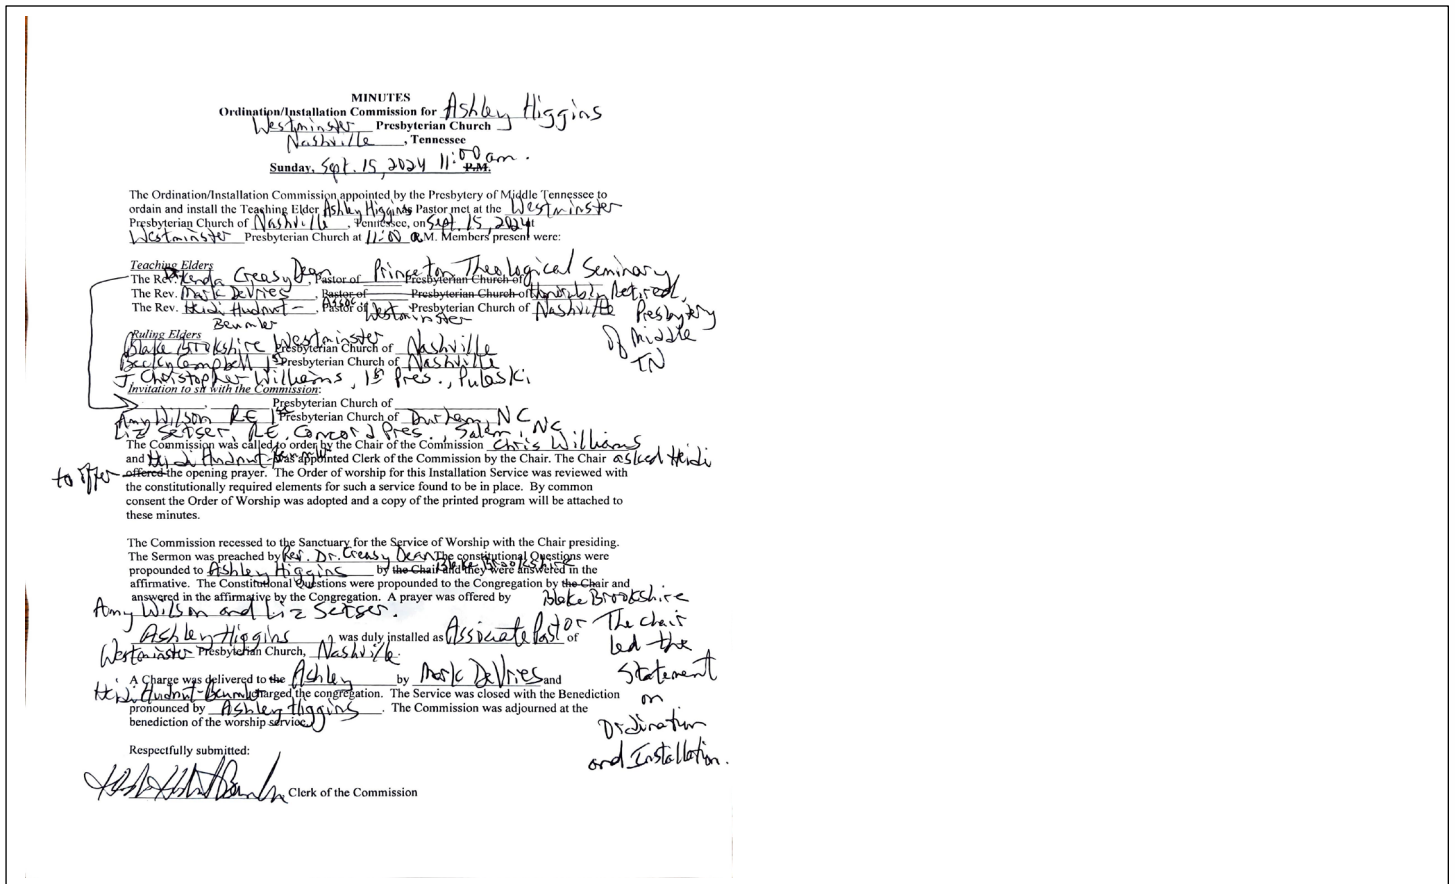 MINUTES
Ordination/Installation Commission for Ashley Higgins
Westminster Presbyterian Church
Nashville, Tennessee
Sunday, Sept. 15, 2024 11:00 am. P.M.
The Ordination/Installation Commission appointed by the Presbytery of Middle Tennessee to
ordain and install the Teaching Elder Ashley Higgins Pastor met at the Westminster
Presbyterian Church of Nashville, Tennessee, on Sept. 15, 2024 at
Westminster Presbyterian Church at 11:00 a.M. Members present were:
Teaching Elders
The Rev. Dr. Kenda Creasy Dean, Pastor of Princeton Theological Seminary Presbyterian Church of
The Rev. Mark DeVries, Pastor of Presbyterian Church of Honorably Retired, Presbytery of Middle TN
The Rev. Heidi Hudnut-Beumler, Assoc. Pastor of Westminster Presbyterian Church of Nashville
Ruling Elders
Blake Brookshire Westminster Presbyterian Church of Nashville
Becky Campbell 1st Presbyterian Church of Nashville
J. Christopher Williams, 1st Pres., Pulaski
Invitation to sit with the Commission:
Presbyterian Church of
Amy Wilson RE 1st Presbyterian Church of Durham, NC
Liz Setser, RE, Concord Pres., Salem, NC
The Commission was called to order by the Chair of the Commission Chris Williams
and Heidi Hudnut-Beumler was appointed Clerk of the Commission by the Chair. The Chair asked Heidi
to offer offered the opening prayer. The Order of worship for this Installation Service was reviewed with
the constitutionally required elements for such a service found to be in place. By common
consent the Order of Worship was adopted and a copy of the printed program will be attached to
these minutes.
The Commission recessed to the Sanctuary for the Service of Worship with the Chair presiding.
The Sermon was preached by Rev. Dr. Creasy Dean The constitutional Questions were
propounded to Ashley Higgins by the Chair Blake Brookshire and they were answered in the
affirmative. The Constitutional Questions were propounded to the Congregation by the Chair and
answered in the affirmative by the Congregation. A prayer was offered by Blake Brookshire
Amy Wilson and Liz Setser.
Ashley Higgins, was duly installed as Associate Pastor of
Westminster Presbyterian Church, Nashville.
The chair
led the
Statement
on
Ordination
and Installation.
A Charge was delivered to the Ashley by Mark DeVries and
Heidi Hudnut-Beumler charged the congregation. The Service was closed with the Benediction
pronounced by Ashley Higgins. The Commission was adjourned at the
benediction of the worship service.
Respectfully submitted:
Clerk of the Commission